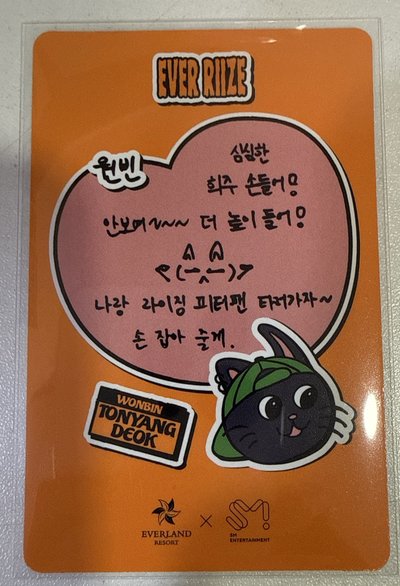 EVER RIIZE
원빈
심심한
희주 손들어!
안보여~~~ 더 높이 들어!
나랑 라이징 피터팬 타러가자~
손 잡아 줄게.
WONBIN
TONYANG
DEOK
EVERLAND
RESORT
×
SM!
SM
ENTERTAINMENT